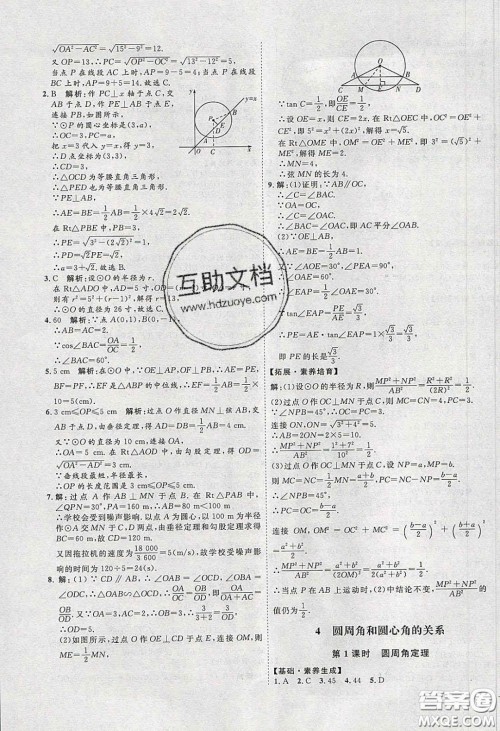 √OA²-AC²=√15²-9²=12.
又 OP=13,∴PC=√OP²-OC²=√13²-12²=5,
当点 P 在线段 AC 上时,AP=9-5=4;当点 P
在线段 BC 上时,AP=9+5=14.
2. B 解析:作 PC⊥x 轴于点 C,交
AB 于点 D,作 PE⊥AB 于点 E,
连接 PB,如图所示.
∵⊙P 的圆心坐标是(3,a),
∴OC=3,PC=a.
把 x=3 代入 y=x,得 y=3,
∴D 点坐标为(3,3),
∴CD=3,
∴△OCD 为等腰直角三角形,
∴△PED 也为等腰直角三角形.
∵PE⊥AB,
∴AE=BE=1/2AB=1/2×4√2=2√2.
在 Rt△PBE 中,PB=3,
∴PE=√3²-(2√2)²=1,
∴PD=√2PE=√2,
∴a=3+√2.故选 B.
3. C 解析:设⊙O 的半径为 r.
在 Rt△ADO 中,AD=5,OD=r-1,OA=r,
则有 r²=5²+(r-1)²,解得 r=13,
∴⊙O 的直径为 26 寸.故选 C.
4. 60 解析:∵点 A(0,1),B(0,-1),
∴AB=2,OA=1,
∴AB=AC=2,
∵cos∠BAC=OA/OC=1/2,
∴∠BAC=60°.
5. 5 cm 解析:∵OE⊥AP,OF⊥PB,∴AE=PE,
BF=PF,∴EF 是△ABP 的中位线,
∴EF=1/2AB=1/2×
10=5(cm).
6. 3 cm≤OP≤5 cm 解析:过点
O 作 OD⊥AB 于点 D,连接 OA,
如图.∵AB=8 cm,
∴AD=1/2AB=4 cm.
在 Rt△OAD 中,由勾股定理,得 OD=
√OA²-AD²=3 cm.
∴OP 的长度范围是 3 cm≤OP≤5 cm.
7. 解:过点 A 作 AB⊥MN 于点 B,在 Rt△PAB 中,
∠QPN=30°,PA=160 m,∴AB=80 m<100 m.
∴学校会受到噪声影响.以点 A 为圆心,以 100 m 为半径
作⊙A 交 MN 于 C,D 两点,由垂径定理和勾股定理求得
BC=60 m,故 CD=120 m.
又因拖拉机的速度为18 000/3 600=5(m/s),故该校受噪声影
响的时间为 120÷5=24(s).
8. 解:(1)∵CD∥AB,∴∠OAB=∠OCD,∠OBA=
∠ODC.∵OA=OB,∴∠OAB=∠OBA.
∴∠OCD=∠ODC,∴OC=OD.∵OA=OB,∴OA/OC=
OB/OD.∵OA=3,AC=2,∴OC=5,故OB/OD=3/(3+2)=3/5.
(2)如图,过点 O 作 OE⊥CD 于点 E,交 AB 于点
M,连接 OE.
∵tan C=1/2,即OE/CE=1/2,
∴设 OE=x,则 CE=2x.
在 Rt△OEC 中,OC²=OE²+CE²,
即 5²=x²+(2x)²,解得 x=√5.
在 Rt△OME 中,OM²=
ME²+OE²,即 3²=(√5)²+
ME²,解得 ME=2,∴MN=4,
∴弦 MN 的长为 4.
9. 解:(1)证明:∵AB∥OC,
∴∠C=∠BAC.
∵OA=OC,∴∠C=∠OAC,
∴∠BAC=∠OAC,即 AC 平分∠OAB.
(2)∵OE⊥AB,
∴AE=BE=1/2AB=1.
又∵∠AOE=30°,∠PEA=90°,
∴∠OAE=60°,
∴∠EAP=1/2∠OAE=30°,
∴tan∠EAP=PE/AE=√3/3,∴PE/1=√3/3,
∴PE=√3/3,
即 PE 的长是√3/3.
【拓展·素养培育】
解:(1)设⊙O 的半径为 R,则(MP²+NP²)/AB²=(R²+R²)/(2R)²=1/2.
(2)过点 O 作 OC⊥MN 于点 C,
连接 ON,∵ON=5,
∴AB=2ON=2×5=10.
∴(MP²+NP²)/AB²=(1²+7²)/10²=1/2.
(3)过点 O 作 OC⊥MN 于点 C,设 NP=a,
PM=b(b>a),则 CM=CN=(a+b)/2,OC=
(a+b)/2-a=(b-a)/2.
连接 OM,OM²=OC²+MC²=((b-a)/2)²+((b+a)/2)²
=(a²+b²)/2.
∴(MP²+NP²)/AB²=(a²+b²)/(2OM)²=(a²+b²)/(2(a²+b²))=1/2.
∴当点 P 在 AB 上运动时,(2)中的(MP²+NP²)/AB²的
值仍为1/2.
4 圆周角和圆心角的关系
第 1 课时 圆周角定理
【基础·素养生成】
1. A 2. C 3. 45 4. 44 5. D
互助文档
www.hdzuoye.com
答案圈
MXQE.COM